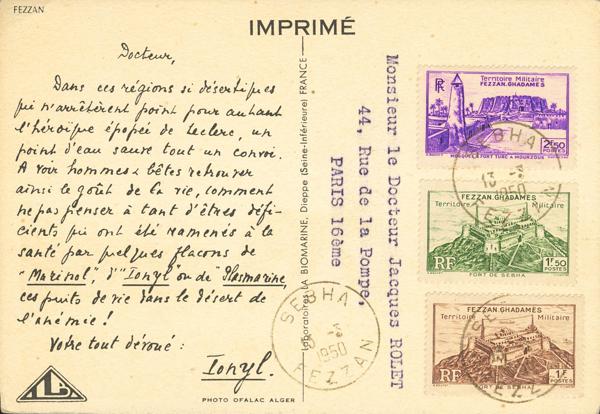 FEZZAN
IMPRIMÉ
Docteur,
Dans ces régions si désertiques
qui n'arrêtèrent point pour autant
l'héroïque épopée de Leclerc, un
point d'eau sauve tout un convoi.
A voir hommes & bêtes retrouver
ainsi le goût de la vie, comment
ne pas penser à tant d'êtres défi-
cients qui ont été ramenés à la
santé par quelques flacons de
"Marinol", d'"Ionyl" ou de "Plasmarine",
ces puits de vie dans le désert de
l'anémie!
Votre tout dévoué:
Ionyl.
PHOTO OFALAC ALGER
Laboratoires LA BIOMARINE, Dieppe (Seine-Inférieure) FRANCE
Monsieur le Docteur Jacques ROLET
44, Rue de la Pompe,
PARIS 16ème
RF
Territoire Militaire
FEZZAN.GHADAMÈS
2F50
MOSQUÉE & FORT TURC A MOURZOUK
POSTES
SEBHA
13 -3
1950
FEZZAN
FEZZAN.GHADAMÈS
Territoire Militaire
RF
FORT DE SEBHA
1F50
POSTES
FEZZAN.GHADAMÈS
Territoire Militaire
RF
FORT DE SEBHA
1F
POSTES
SEBHA
-3
1950
FEZZAN